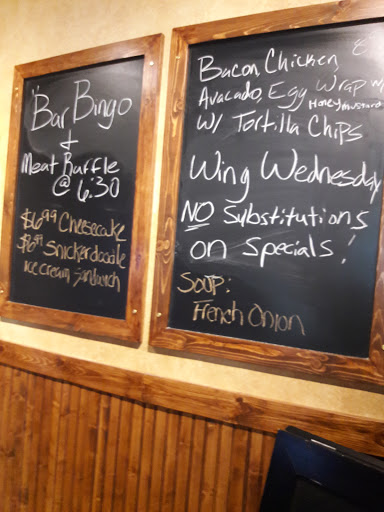 Bar Bingo
&
Meat Raffle
@ 6:30
$6.99 Cheesecake
$6.99 Snickerdoodle
ice cream sandwich
Bacon, Chicken, &
Avacado, Egg Wrap w/
Honey mustard
W/ Tortilla Chips
Wing Wednesday
NO Substitutions
on Specials!
Soup:
French Onion